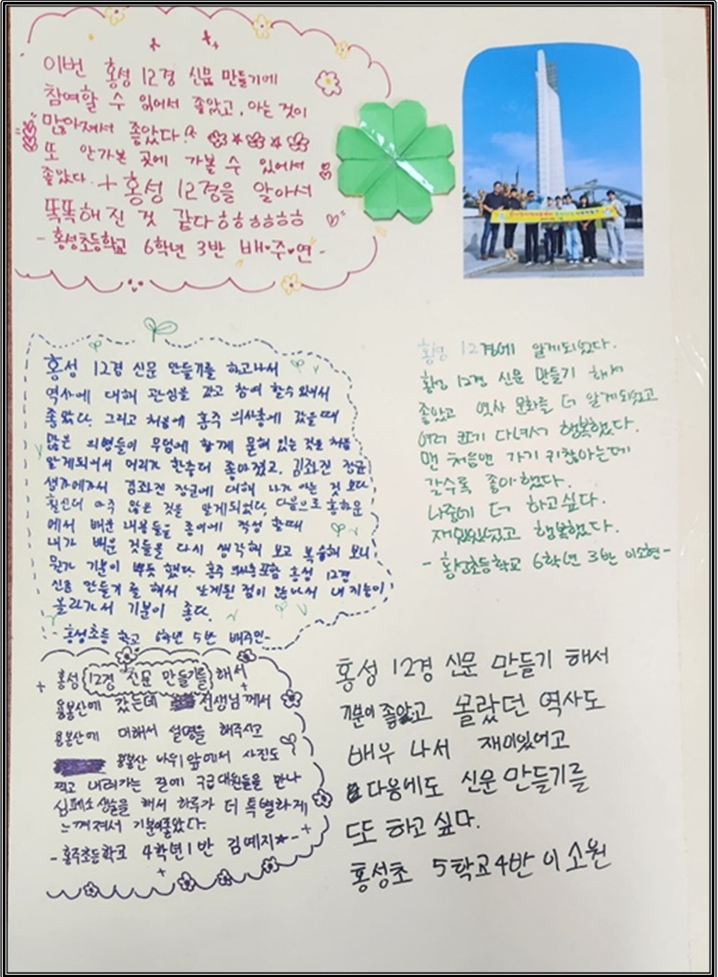 이번 홍성 12경 신문 만들기에
참여할 수 있어서 좋았고, 아는 것이
많아져서 좋았다.
또 안가본 곳에 가볼 수 있어서
좋았다. + 홍성 12경을 알아서
똑똑해진 것 같다ㅎㅎㅎㅎㅎ
- 홍성초등학교 6학년 3반 배♥주♥연 -
홍성 12경 신문 만들기를 하고나서
역사에 대해 관심을 갖고 참여 할수 있어서
좋았다. 그리고 처음에 홍주 의사총에 갔을때
많은 의병들이 무덤에 함께 묻혀 있는 것은 처음
알게되어서 머리가 한층더 좋아졌고, 김좌진 장군
생가에가서 김좌진 장군에 대해 내가 아는 것 보다
훨씬더 아주 많은 것을 알게되었다. 다음으로
에서 배운 내용들을 종이에 작성 할때
내가 배운 것들을 다시 생각해 보고 복습해 보니
뭔가 기분이 뿌듯 했다. 홍주 의사총포함 홍성 12경
신문 만들기를 해서 알게된 점이 많아서 내 지능이
올라가서 기분이 좋다.
- 홍성초등 학교 6학년 5반 배주민-
홍성 12경에 알게되었다.
홍성 12경 신문 만들기 해서
좋았고 역사 문화를 더 알게되었고
여러 군데 다녀서 행복했다.
맨 처음엔 가기 귀찮아는데
갈수록 좋아했다.
나중에 더 하고싶다.
재미있었고 행복했다.
- 홍성초등학교 6학년 3반 이소현-
홍성 12경 신문 만들기를 해서
용봉산에 갔는데 선생님께서
용봉산에 대해서 설명을 해주시고
용봉산 바위 앞에서 사진도
찍고 내려가는 길에 구급대원들을 만나
심폐소생술을 해서 하루가 더 특별하게
느껴져서 기분이좋았다.
-홍주초등학교 4학년1반 김예지☆-
홍성 12경 신문 만들기 해서
기분이 좋았고 몰랐던 역사도
배우 나서 재미있어고
다음에도 신문 만들기를
또도 하고 싶다.
홍성초 5학교4반 이소원